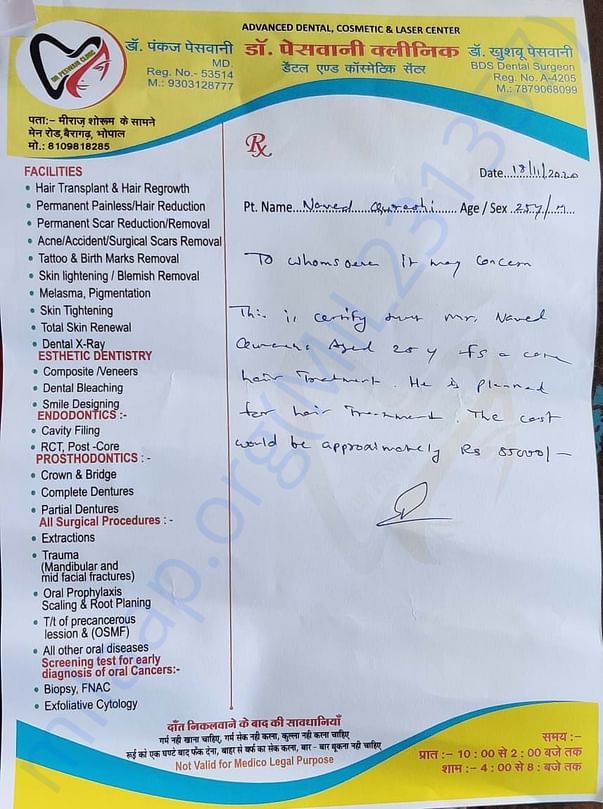 ADVANCED DENTAL, COSMETIC & LASER CENTER
DR PESWANI CLINIC
डॉ. पंकज पेसवानी
MD.
Reg. No.- 53514
M.: 9303128777
डॉ. पेसवानी क्लीनिक
डेंटल एण्ड कॉस्मेटिक सेंटर
डॉ. खुशबू पेसवानी
BDS Dental Surgeon
Reg. No. A-4205
M.: 7879068099
पता:- मीराज शोरूम के सामने
मेन रोड,बैरागढ़, भोपाल
मो.: 8109818285
Rx
Date 18/11/2020
Pt. Name Naved Qureshi Age / Sex 25y/M
To whomsoever it may concern
This is certify that Mr. Naved
Aged 25 y is a case
hair Treatment. He is planned
for hair Treatment. The cost
would be approximately Rs 55000/-
FACILITIES
• Hair Transplant & Hair Regrowth
• Permanent Painless/Hair Reduction
• Permanent Scar Reduction/Removal
• Acne/Accident/Surgical Scars Removal
• Tattoo & Birth Marks Removal
• Skin lightening / Blemish Removal
• Melasma, Pigmentation
• Skin Tightening
• Total Skin Renewal
• Dental X-Ray
ESTHETIC DENTISTRY
• Composite /Veneers
• Dental Bleaching
• Smile Designing
ENDODONTICS :-
• Cavity Filing
• RCT, Post -Core
PROSTHODONTICS : -
• Crown & Bridge
• Complete Dentures
• Partial Dentures
All Surgical Procedures : -
• Extractions
• Trauma
(Mandibular and
mid facial fractures)
• Oral Prophylaxis
Scaling & Root Planing
• T/t of precancerous
lession & (OSMF)
• All other oral diseases
Screening test for early
diagnosis of oral Cancers:-
• Biopsy, FNAC
• Exfoliative Cytology
दाँत निकलवाने के बाद की सावधानियाँ
गर्म नही खाना चाहिए, गर्म सेक नही करना, कुल्ला नही करना चाहिए
रूई को एक घण्टे बाद फेंक देना, बाहर से बर्फ का सेक करना, बार - बार थूकना नही चाहिए
Not Valid for Medico Legal Purpose
समय :-
प्रातः :- 10 : 00 से 2 : 00 बजे तक
शाम :- 4 : 00 से 8 : बजे तक